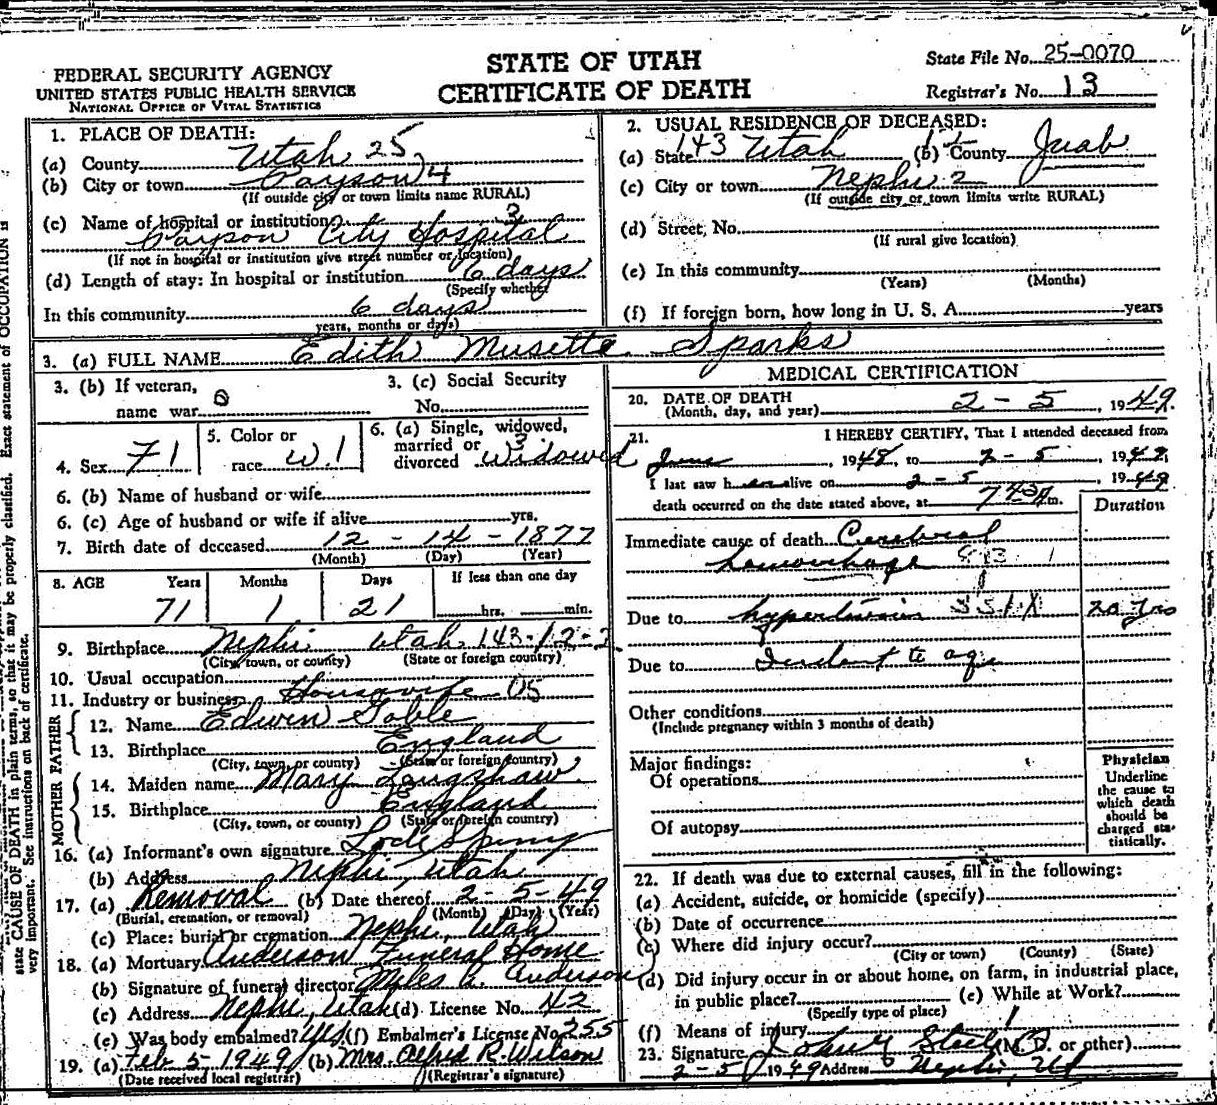 STATE OF UTAH
CERTIFICATE OF DEATH
FEDERAL SECURITY AGENCY
UNITED STATES PUBLIC HEALTH SERVICE
NATIONAL OFFICE OF VITAL STATISTICS
State File No. 25-0070
Registrar's No. 13
1. PLACE OF DEATH:
(a) County Utah 25
(b) City or town Payson 4
(If outside city or town limits name RURAL)
(c) Name of hospital or institution 3
Payson City Hospital
(If not in hospital or institution give street number or location)
(d) Length of stay: In hospital or institution 6 days
(Specify whether
In this community 6 days
years, months or days)
2. USUAL RESIDENCE OF DECEASED:
(a) State 143 Utah (b) County Juab
(c) City or town Nephi 2
(If outside city or town limits write RURAL)
(d) Street, No.
(If rural give location)
(e) In this community
(Years) (Months)
(f) If foreign born, how long in U. S. A. years
3. (a) FULL NAME Edith Musetta Sparks
3. (b) If veteran,
name war 0
3. (c) Social Security
No.
4. Sex F 1
5. Color or
race W. 1
6. (a) Single, widowed,
married or 3
divorced Widowed
6. (b) Name of husband or wife
6. (c) Age of husband or wife if alive yrs.
7. Birth date of deceased 12 - 14 - 1877
(Month) (Day) (Year)
8. AGE Years Months Days If less than one day
71 1 21 hrs. min.
9. Birthplace Nephi Utah 143-12-2
(City, town, or county) (State or foreign country)
10. Usual occupation
11. Industry or business Housewife 05
FATHER
12. Name Edwin Goble
13. Birthplace England
(City, town, or county) (State or foreign country)
MOTHER
14. Maiden name Mary Longshaw
15. Birthplace England
(City, town, or county) (State or foreign country)
16. (a) Informant's own signature
(b) Address Nephi, Utah
17. (a) Removal (b) Date thereof 2-5-49
(Burial, cremation, or removal) (Month) (Day) (Year)
(c) Place: burial or cremation Nephi, Utah
18. (a) Mortuary Anderson Funeral Home
(b) Signature of funeral director Miles A. Anderson
(c) Address Nephi, Utah (d) License No. 42
(e) Was body embalmed? Yes (f) Embalmer's License No. 255
19. (a) Feb 5, 1949 (b) Mrs. Alfred R. Wilson
(Date received local registrar) (Registrar's signature)
MEDICAL CERTIFICATION
20. DATE OF DEATH
(Month, day, and year) 2 - 5, 1949.
21. I HEREBY CERTIFY, That I attended deceased from
June, 1948, to 2-5, 1949,
I last saw her alive on 2-5, 1949
death occurred on the date stated above, at 7 45 A m.
Duration
Immediate cause of death Cerebral
hemorrhage
Due to hypertension 331X 20 yrs
Due to Incident to age
Other conditions
(Include pregnancy within 3 months of death)
Major findings:
Of operations
Of autopsy
Physician
Underline
the cause to
which death
should be
charged sta-
tistically.
22. If death was due to external causes, fill in the following:
(a) Accident, suicide, or homicide (specify)
(b) Date of occurrence
(c) Where did injury occur?
(City or town) (County) (State)
(d) Did injury occur in or about home, on farm, in industrial place,
in public place? (e) While at Work?
(Specify type of place)
(f) Means of injury
23. Signature (M.D. or other)
2-5 1949 Address Nephi, Ut
state CAUSE OF DEATH in plain terms, so that it may be properly classified. Exact statement of OCCUPATION is
very important. See instructions on back of certificate.